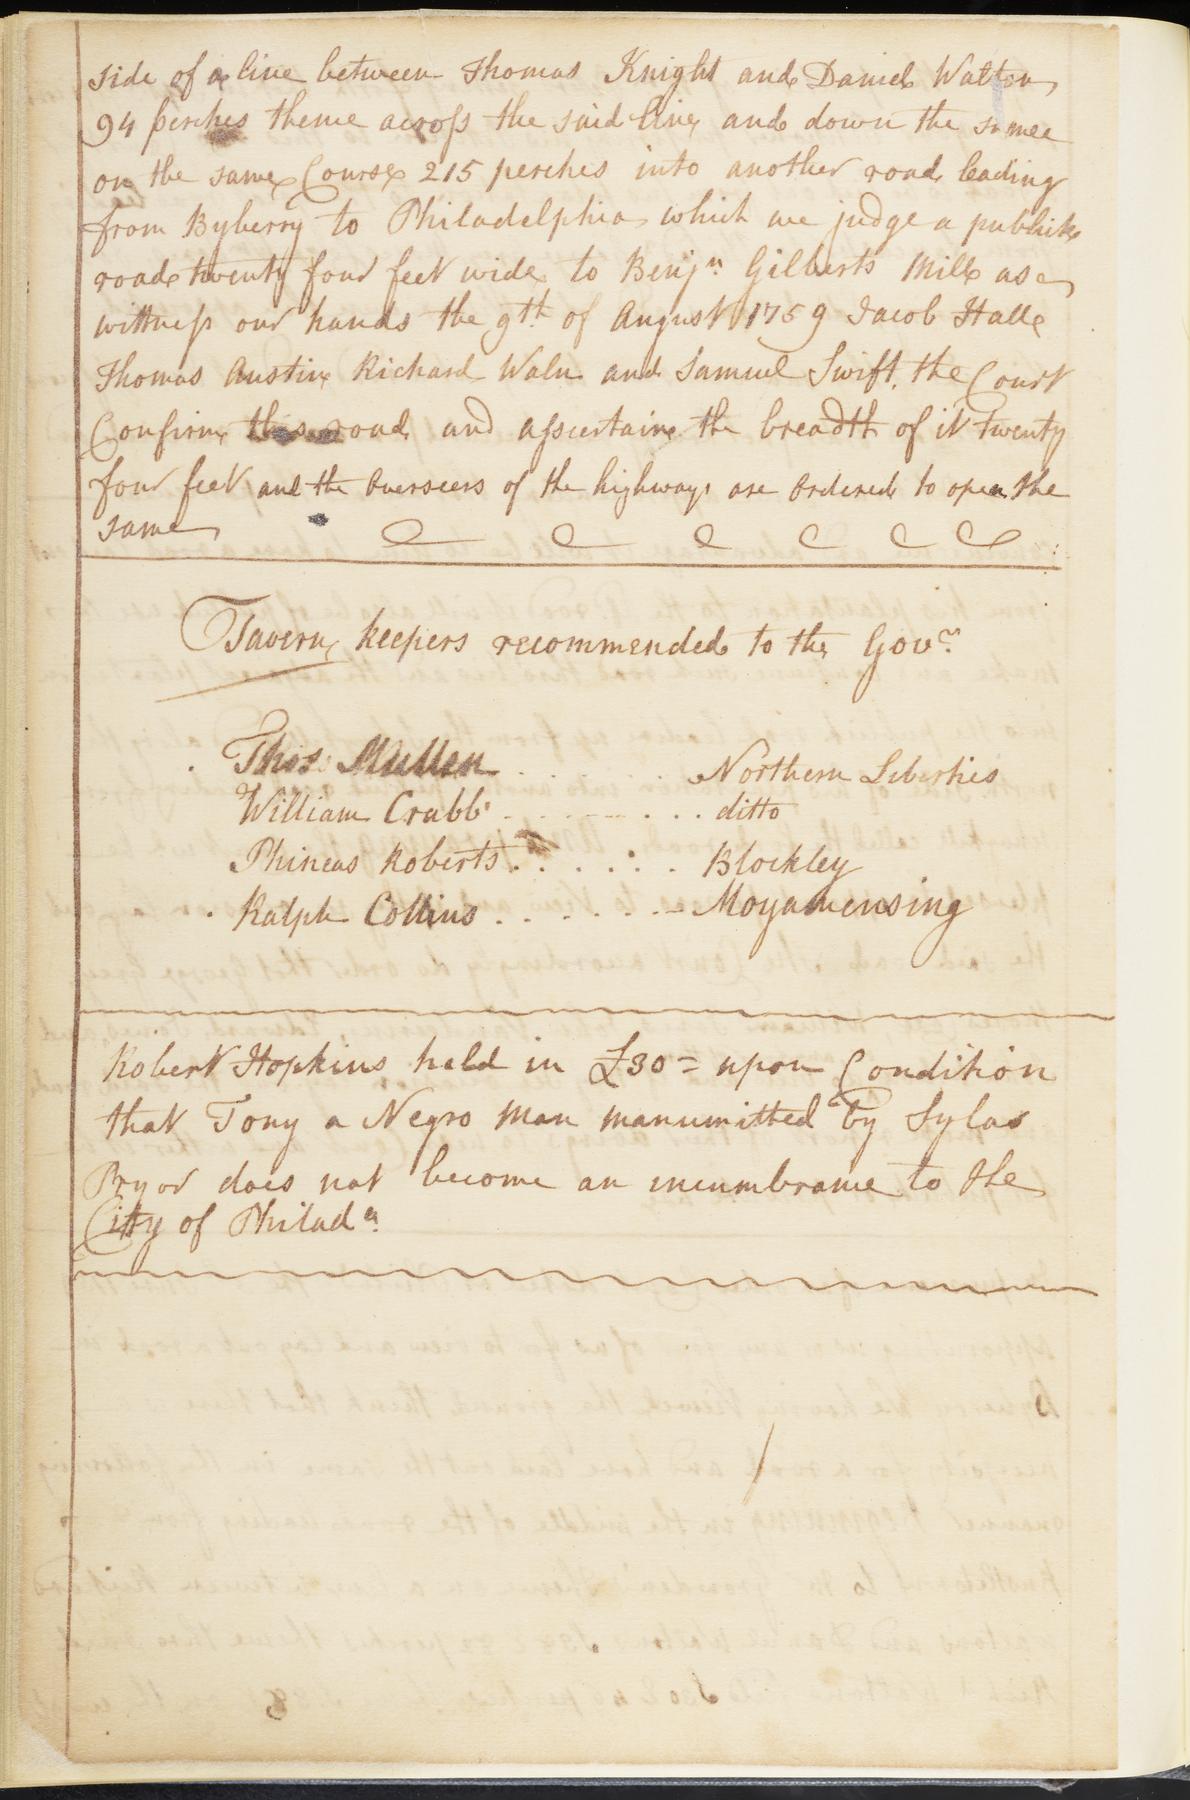 side of a line between Thomas Knight and Daniel Walton
94 perches thence across the said line and down the same
on the same Course 215 perches into another road leading
from Byberry to Philadelphia which we judge a publick
road twenty four feet wide to Benjn Gilberts Mill as
wittness our hands the 9th of August 1759 Jacob Hall
Thomas Austin Richard Waln and Samuel Swift, the Court
Confirm this road and assertain the breadth of it twenty
four feet and the Overseers of the highways are Ordered to open the
same
Tavern keepers recommended to the Govr
Thos Mullen . . . . . . Northern Liberties
William Crabb . . . . . . . ditto
Phineas Roberts . . . . . . Blockley
Ralph Collins . . . . . . Moyamensing
Robert Hopkins held in £30 = upon Condition
that Tony a Negro Man manumitted by Sylas
Pryor does not become an incumbrance to the
Citty of Philada